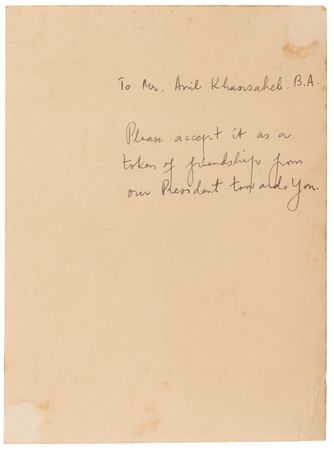 To Mr. Anil Khansaheb. B.A.
Please accept it as a
token of friendship from
our President towards You.